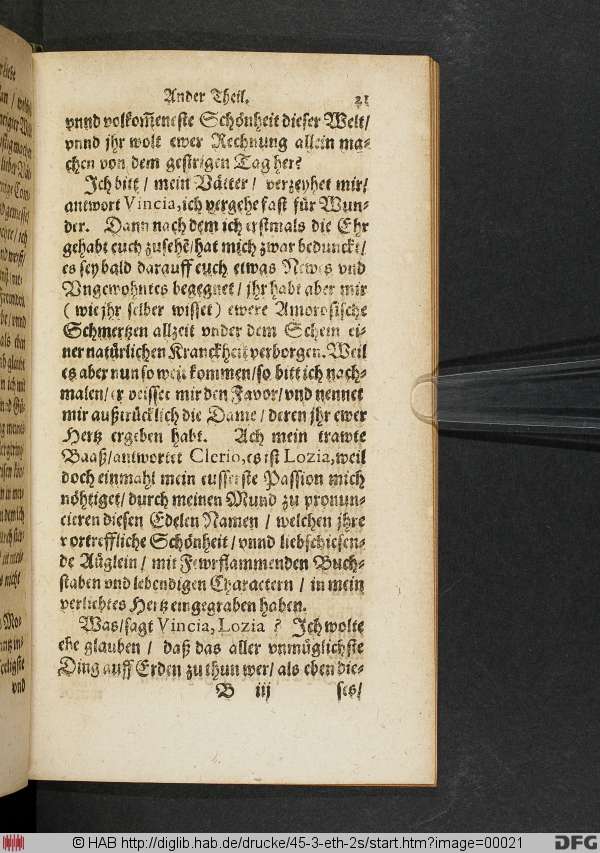 Ander Theil. 21
vnnd volkom̃eneste Schönheit dieser Welt/
vnnd jhr wolt ewer Rechnung allein ma-
chen von dem gestrigen Tag her?
Ich bitt / mein Vätter / verzeyhet mir/
antwort Vincia, ich vergehe fast für Wun-
der. Dann nach dem ich erstmals die Ehr
gehabt euch zusehẽ/ hat mich zwar bedunckt/
es sey bald darauff euch etwas Newes vnd
Vngewohntes begegnet / jhr habt aber mir
( wie jhr selber wisset ) ewere Amorosische
Schmertzen allzeit vnder dem Schein ei-
ner natürlichen Kranckheit verborgen. Weil
es aber nun so weit kommen/ so bitt ich noch-
malen/ erweisset mir den Favor/ vnd nennet
mir außtrücklich die Dame / deren jhr ewer
Hertz ergeben habt. Ach mein trawte
Baaß/ antwortet Clerio, es ist Lozia, weil
doch einmahl mein eusserste Passion mich
nöhtiget/ durch meinen Mund zu pronun-
cieren diesen Edelen Namen / welchen jhre
vortreffliche Schönheit / vnnd liebschiessen-
de Aüglein / mit Fewrflammenden Buch-
staben vnd lebendigen Charactern / in mein
verliebtes Hertz eingegraben haben.
Was/ sagt Vincia, Lozia ? Ich wolte
ehe glauben / daß das aller vnmüglichste
Ding auff Erden zu thun wer/ als eben die-
B iij ses/
© HAB http://diglib.hab.de/drucke/45-3-eth-2s/start.htm?image=00021
DFG